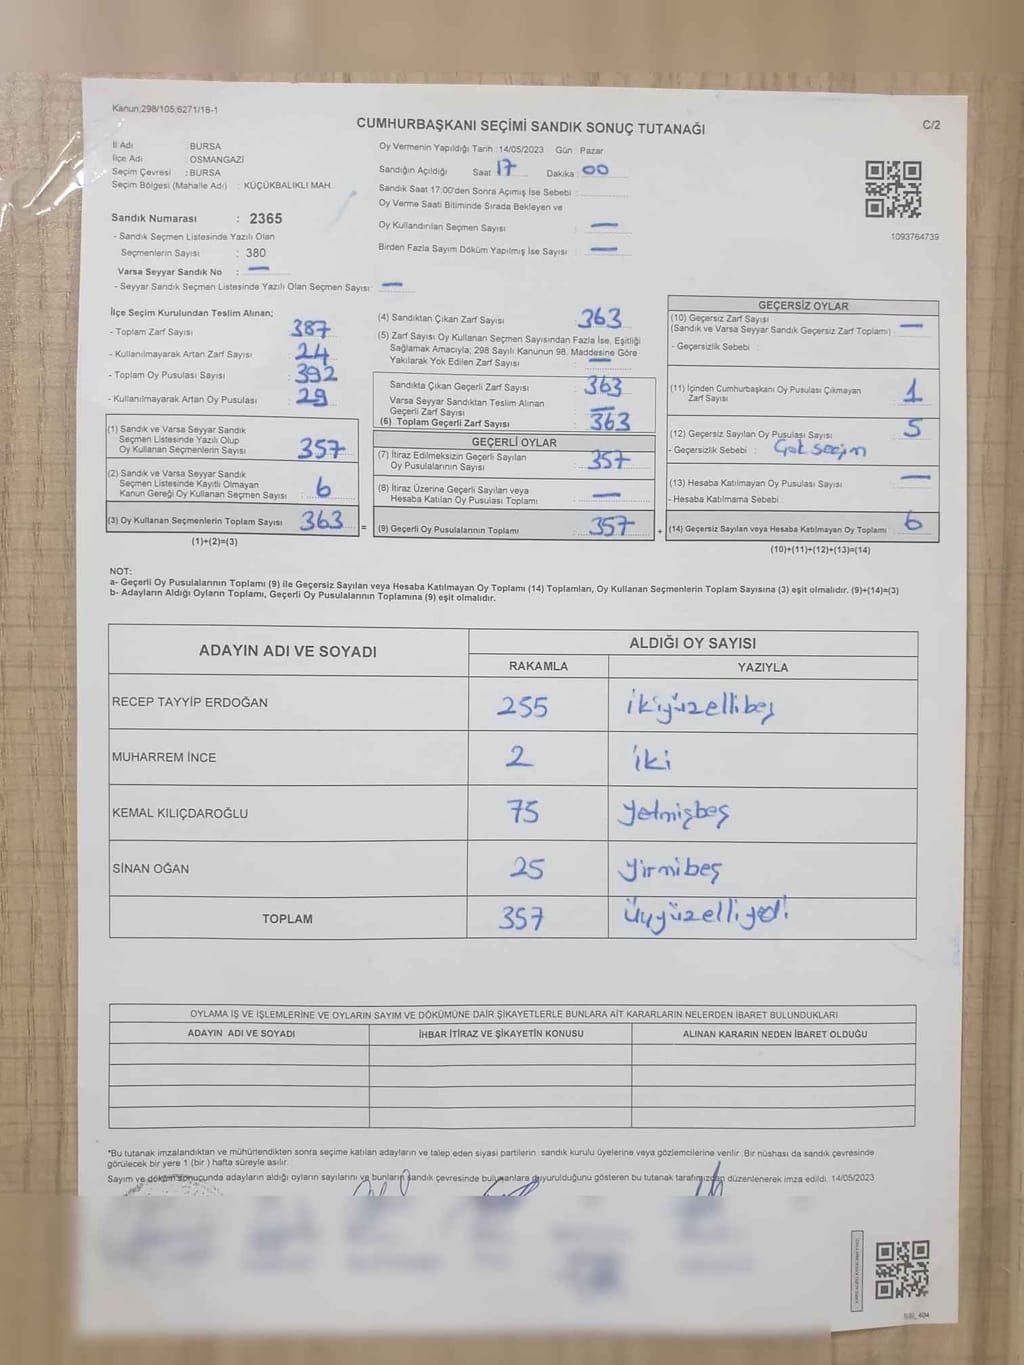 Kanun;298/105;6271/16-1
CUMHURBAŞKANI SEÇİMİ SANDIK SONUÇ TUTANAĞI
C/2
İl Adı BURSA
İlçe Adı : OSMANGAZİ
Seçim Çevresi : BURSA
Seçim Bölgesi (Mahalle Adı) : KÜÇÜKBALIKLI MAH.
Sandık Numarası : 2365
- Sandık Seçmen Listesinde Yazılı Olan
Seçmenlerin Sayısı : 380
Varsa Seyyar Sandık No : —
- Seyyar Sandık Seçmen Listesinde Yazılı Olan Seçmen Sayısı: —
Oy Vermenin Yapıldığı Tarih : 14/05/2023 Gün : Pazar
Sandığın Açıldığı Saat 17 Dakika : 00
Sandık Saat 17:00'den Sonra Açımış İse Sebebi :
Oy Verme Saati Bitiminde Sırada Bekleyen ve
Oy Kullandırılan Seçmen Sayısı : —
Birden Fazla Sayım Döküm Yapılmış İse Sayısı : —
1093764739
İlçe Seçim Kurulundan Teslim Alınan;
- Toplam Zarf Sayısı : 387
- Kullanılmayarak Artan Zarf Sayısı : 24
- Toplam Oy Pusulası Sayısı : 392
- Kullanılmayarak Artan Oy Pusulası : 29
(1) Sandık ve Varsa Seyyar Sandık
Seçmen Listesinde Yazılı Olup
Oy Kullanan Seçmenlerin Sayısı : 357
(2) Sandık ve Varsa Seyyar Sandık
Seçmen Listesinde Kayıtlı Olmayan
Kanun Gereği Oy Kullanan Seçmen Sayısı : 6
(3) Oy Kullanan Seçmenlerin Toplam Sayısı : 363
(1)+(2)=(3)
(4) Sandıktan Çıkan Zarf Sayısı : 363
(5) Zarf Sayısı Oy Kullanan Seçmen Sayısından Fazla İse, Eşitliği
Sağlamak Amacıyla; 298 Sayılı Kanunun 98. Maddesine Göre
Yakılarak Yok Edilen Zarf Sayısı : —
Sandıkta Çıkan Geçerli Zarf Sayısı : 363
Varsa Seyyar Sandıktan Teslim Alınan
Geçerli Zarf Sayısı : —
(6) Toplam Geçerli Zarf Sayısı : 363
GEÇERLİ OYLAR
(7) İtiraz Edilmeksizin Geçerli Sayılan
Oy Pusulalarının Sayısı : 357
(8) İtiraz Üzerine Geçerli Sayılan veya
Hesaba Katılan Oy Pusulası Toplamı : —
= (9) Geçerli Oy Pusulalarının Toplamı : 357
GEÇERSİZ OYLAR
(10) Geçersiz Zarf Sayısı
(Sandık ve Varsa Seyyar Sandık Geçersiz Zarf Toplamı) : —
- Geçersizlik Sebebi :
(11) İçinden Cumhurbaşkanı Oy Pusulası Çıkmayan
Zarf Sayısı : 1
(12) Geçersiz Sayılan Oy Pusulası Sayısı : 5
- Geçersizlik Sebebi : Çok seçim
(13) Hesaba Katılmayan Oy Pusulası Sayısı : —
- Hesaba Katılmama Sebebi :
+ (14) Geçersiz Sayılan veya Hesaba Katılmayan Oy Toplamı : 6
(10)+(11)+(12)+(13)=(14)
NOT:
a- Geçerli Oy Pusulalarının Toplamı (9) ile Geçersiz Sayılan veya Hesaba Katılmayan Oy Toplamı (14) Toplamları, Oy Kullanan Seçmenlerin Toplam Sayısına (3) eşit olmalıdır. (9)+(14)=(3)
b- Adayların Aldığı Oyların Toplamı, Geçerli Oy Pusulalarının Toplamına (9) eşit olmalıdır.
ADAYIN ADI VE SOYADI
ALDIĞI OY SAYISI
RAKAMLA YAZIYLA
RECEP TAYYİP ERDOĞAN 255 ikiyüzellibeş
MUHARREM İNCE 2 iki
KEMAL KILIÇDAROĞLU 75 yetmişbeş
SİNAN OĞAN 25 yirmibeş
TOPLAM 357 üçyüzelliyedi
OYLAMA İŞ VE İŞLEMLERİNE VE OYLARIN SAYIM VE DÖKÜMÜNE DAİR ŞİKAYETLERLE BUNLARA AİT KARARLARIN NELERDEN İBARET BULUNDUKLARI
ADAYIN ADI VE SOYADI İHBAR İTİRAZ VE ŞİKAYETİN KONUSU ALINAN KARARIN NEDEN İBARET OLDUĞU
*Bu tutanak imzalandıktan ve mühürlendikten sonra seçime katılan adayların ve talep eden siyasi partilerin sandık kurulu üyelerine veya gözlemcilerine verilir. Bir nüshası da sandık çevresinde
görülecek bir yere 1 (bir) hafta süreyle asılır.
Sayım ve döküm sonucunda adayların aldığı oyların sayılarını ve bunların sandık çevresinde bulunanlara duyurulduğunu gösteren bu tutanak tarafımızdan düzenlenerek imza edildi. 14/05/2023